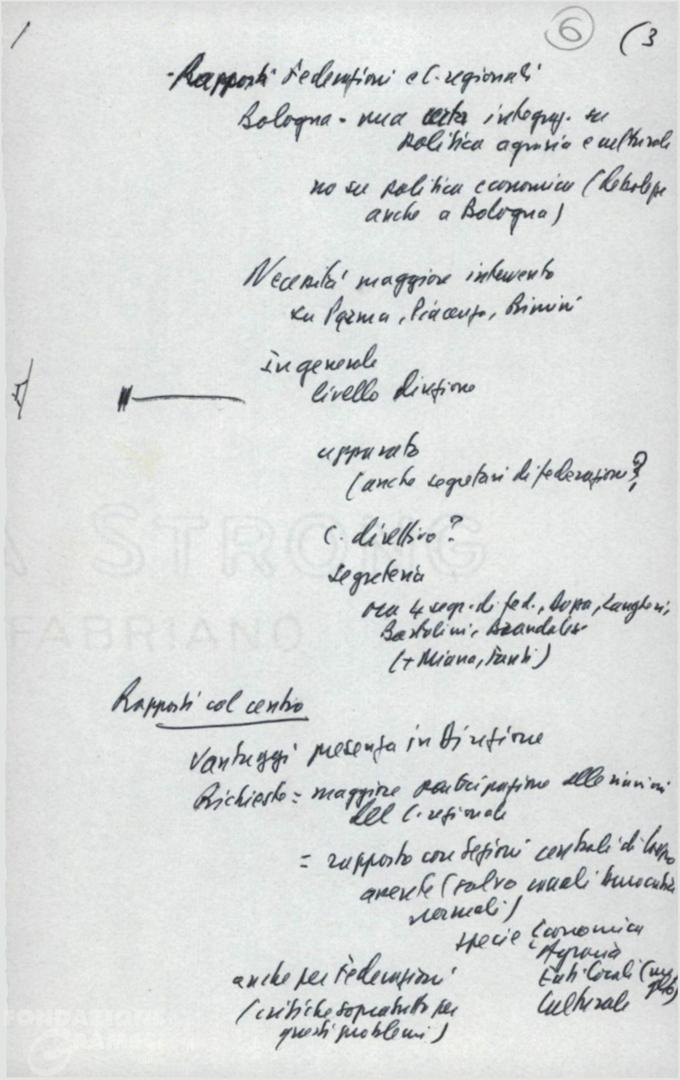 6 (3
- Rapporti Federazioni e C. regionali
Bologna - una certa integraz. su
politica agraria e culturale
no su politica economica (
anche a Bologna)
Necessità maggiore intervento
su Parma, Piacenza, Rimini
In generale
livello direzione
apparato
(anche segretari di federazione?)
C. direttivo?
Segreteria
ora 4 segr. di fed.,
Bartolini,
(+ Miana, Fanti)
Rapporti col centro
Vantaggi presenza in Direzione
Richieste = maggiore partecipazione alle riunioni
del C. regionale
= rapporto con Sezioni centrali di lavoro
(salvo canali
normali)
specie Economica
Agraria
anche per Federazioni Enti locali (
(critiche soprattutto per Culturale
questi problemi)
A STRONG
FABRIANO
FONDAZIONE
GRAMSCI